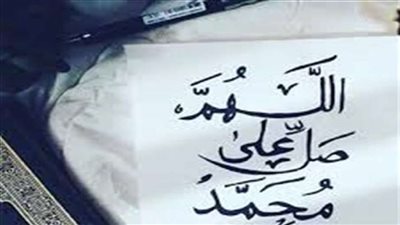 اللَّهُمَّ
صَلِّ عَلَى
مُحَمَّدُ